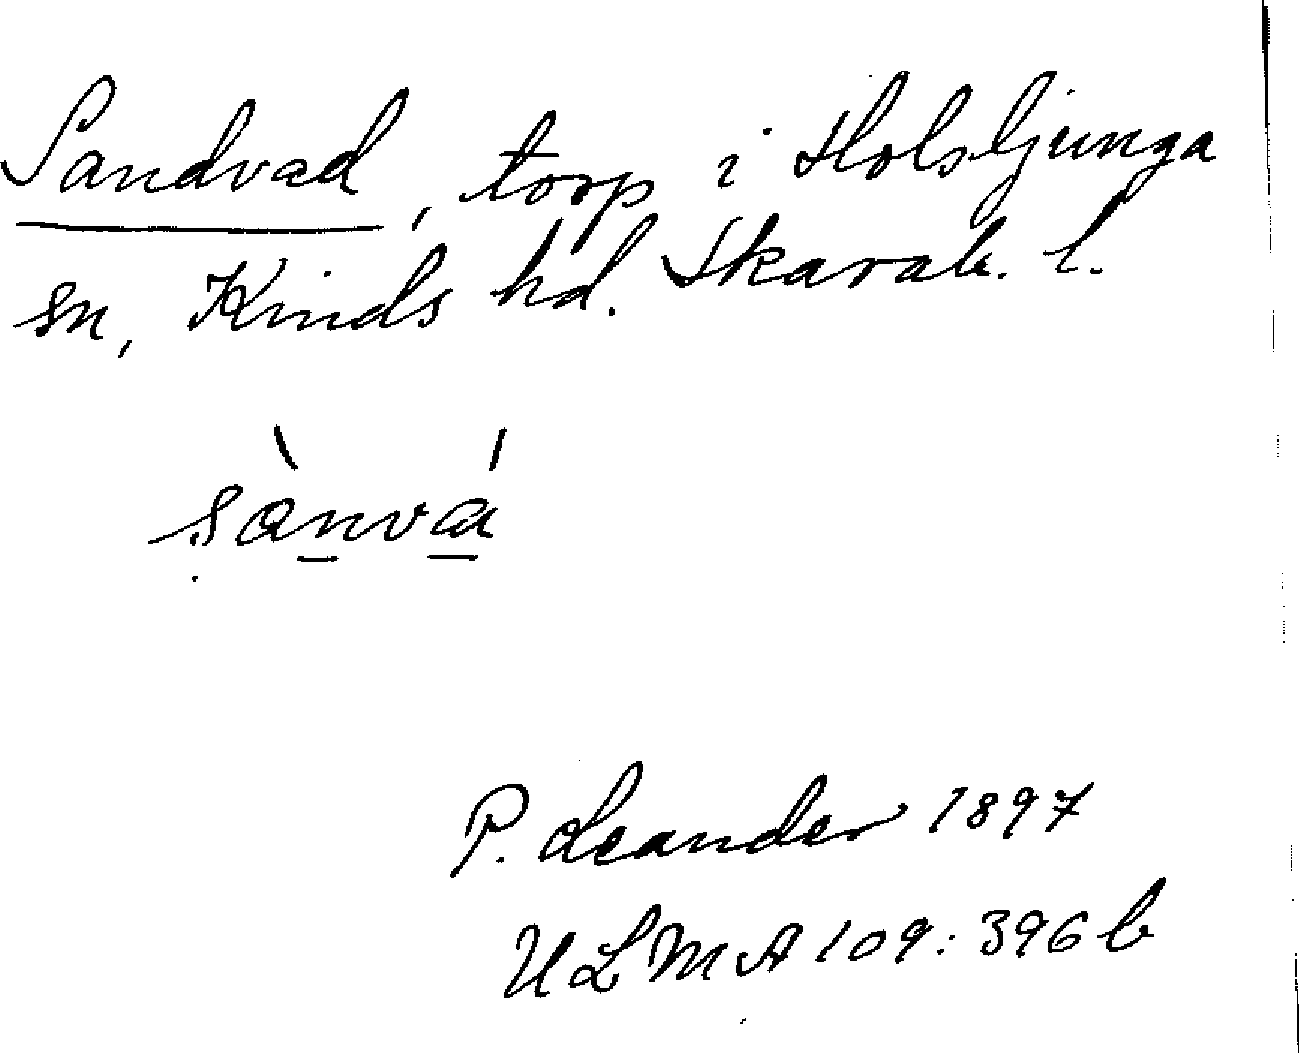 Sandvad, torp i Holsljunga
sn, Kinds hd. Skarab. l.
sànvá
P. Leander 1897
ULMA 109:396 b